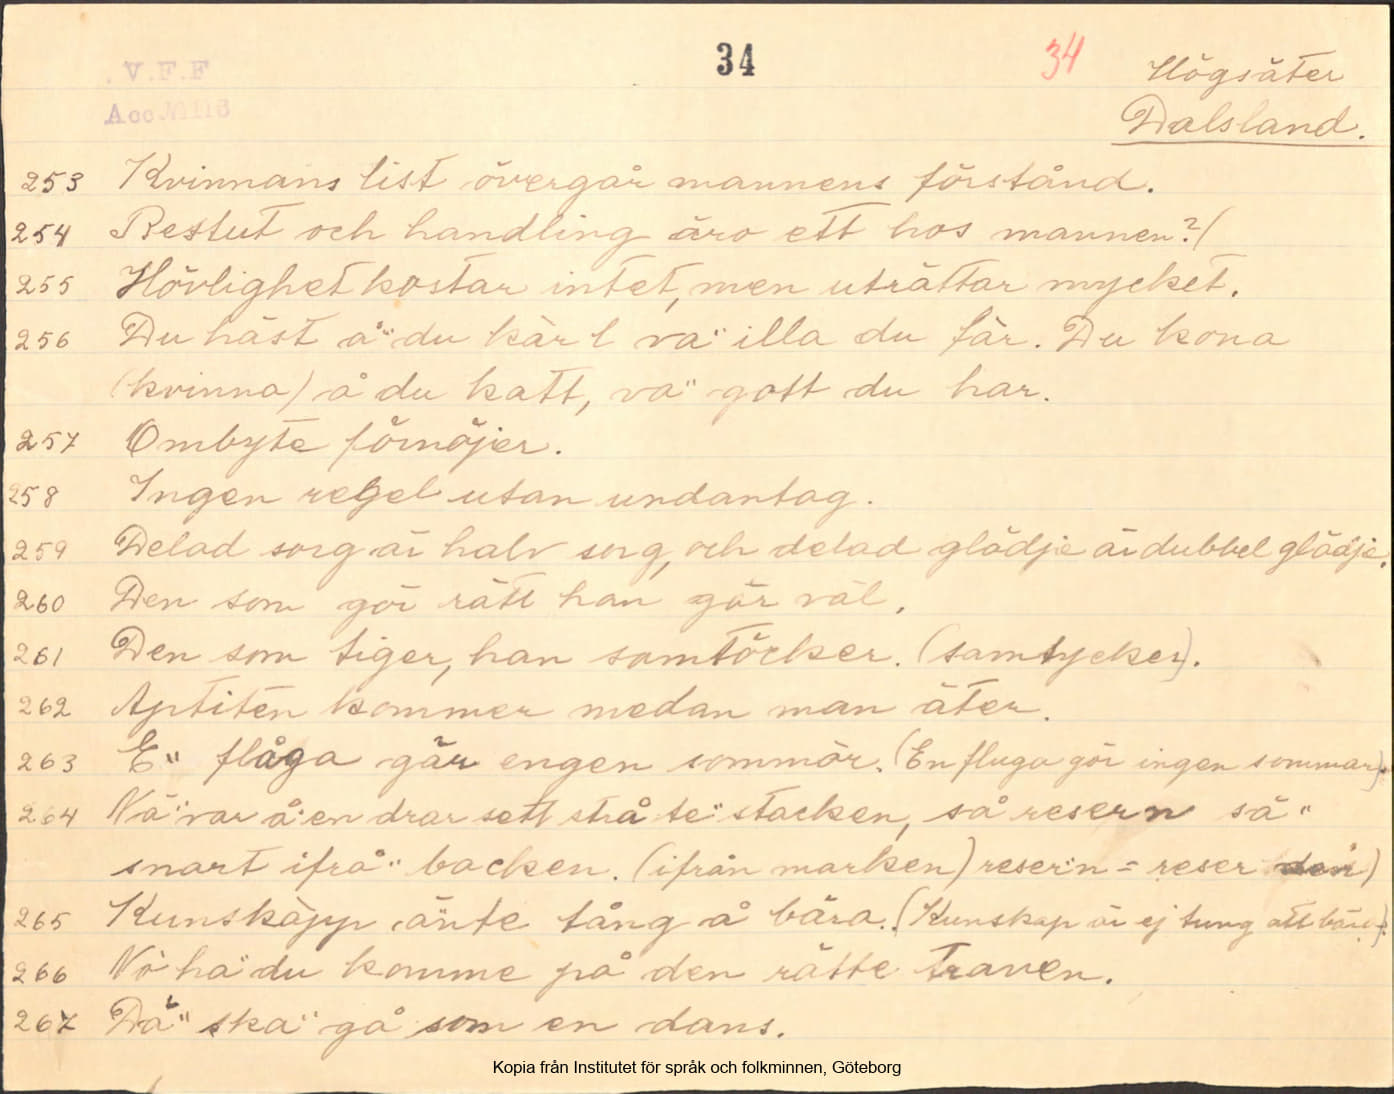 34
34
V.F.F
Acc. № 1116
Högsäter
Dalsland.
253 Kvinnans list övergår mannens förstånd.
254 Beslut och handling äro ett hos mannen?(
255 Hövlighet kostar intet, men uträttar mycket.
256 Du häst å" du kär l va" illa du far. Du kona
(kvinna) å du katt, va" gott du har.
257 Ombyte förnöjer.
258 Ingen regel utan undantag.
259 Delad sorg är halv sorg, och delad glädje är dubbel glädje.
260 Den som gör rätt han gör väl.
261 Den som tiger, han samtöcker. (samtycker).
262 Aptiten kommer medan man äter.
263 E" flåga gär engen sommär. (En fluga gör ingen sommar).
264 Nä" var å" en drar sett strå te" stacken, så resern så"
snart ifrå" backen. (ifrån marken) reser"n = reser den)
265 Kunskäpp änte tång å bära. (Kunskap är ej tung att bära).
266 Nö ha" du komme på den rätte traven.
267 Dä" ska" gå som en dans.
Kopia från Institutet för språk och folkminnen, Göteborg